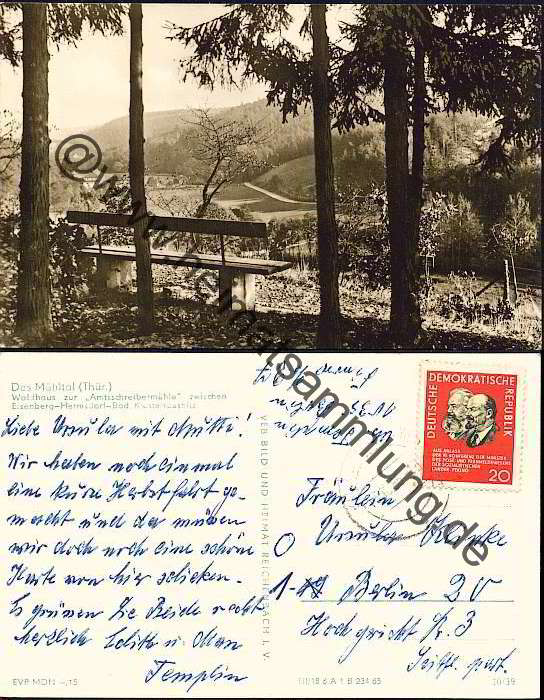 @www.heimatsammlung.de
Das Mühltal (Thür.)
Waldhaus zur „Amtsschreibermühle" zwischen
Eisenberg-Hermsdorf-Bad Klosterlausnitz
Liebe Ursula mit Mutti!
Wir haben noch einmal
eine kurze Herbstfahrt ge-
macht und da müssen
wir doch noch eine schöne
Karte von hier schicken.
Es grüssen Sie Beide recht
herzlich Edith u. Man
Templin
EVP MDN -,15
VEB BILD UND HEIMAT REICHENBACH i. V.
DEUTSCHE DEMOKRATISCHE REPUBLIK
AUS ANLASS
DER KONFERENZ DER MINISTER
DES POST- UND FERNMELDEWESENS
DER SOZIALISTISCHEN
LÄNDER PEKING
20
Fräulein
Ursula
Berlin 20
Hochgericht Nr. 3
III/18 6 A 1 B 234 65